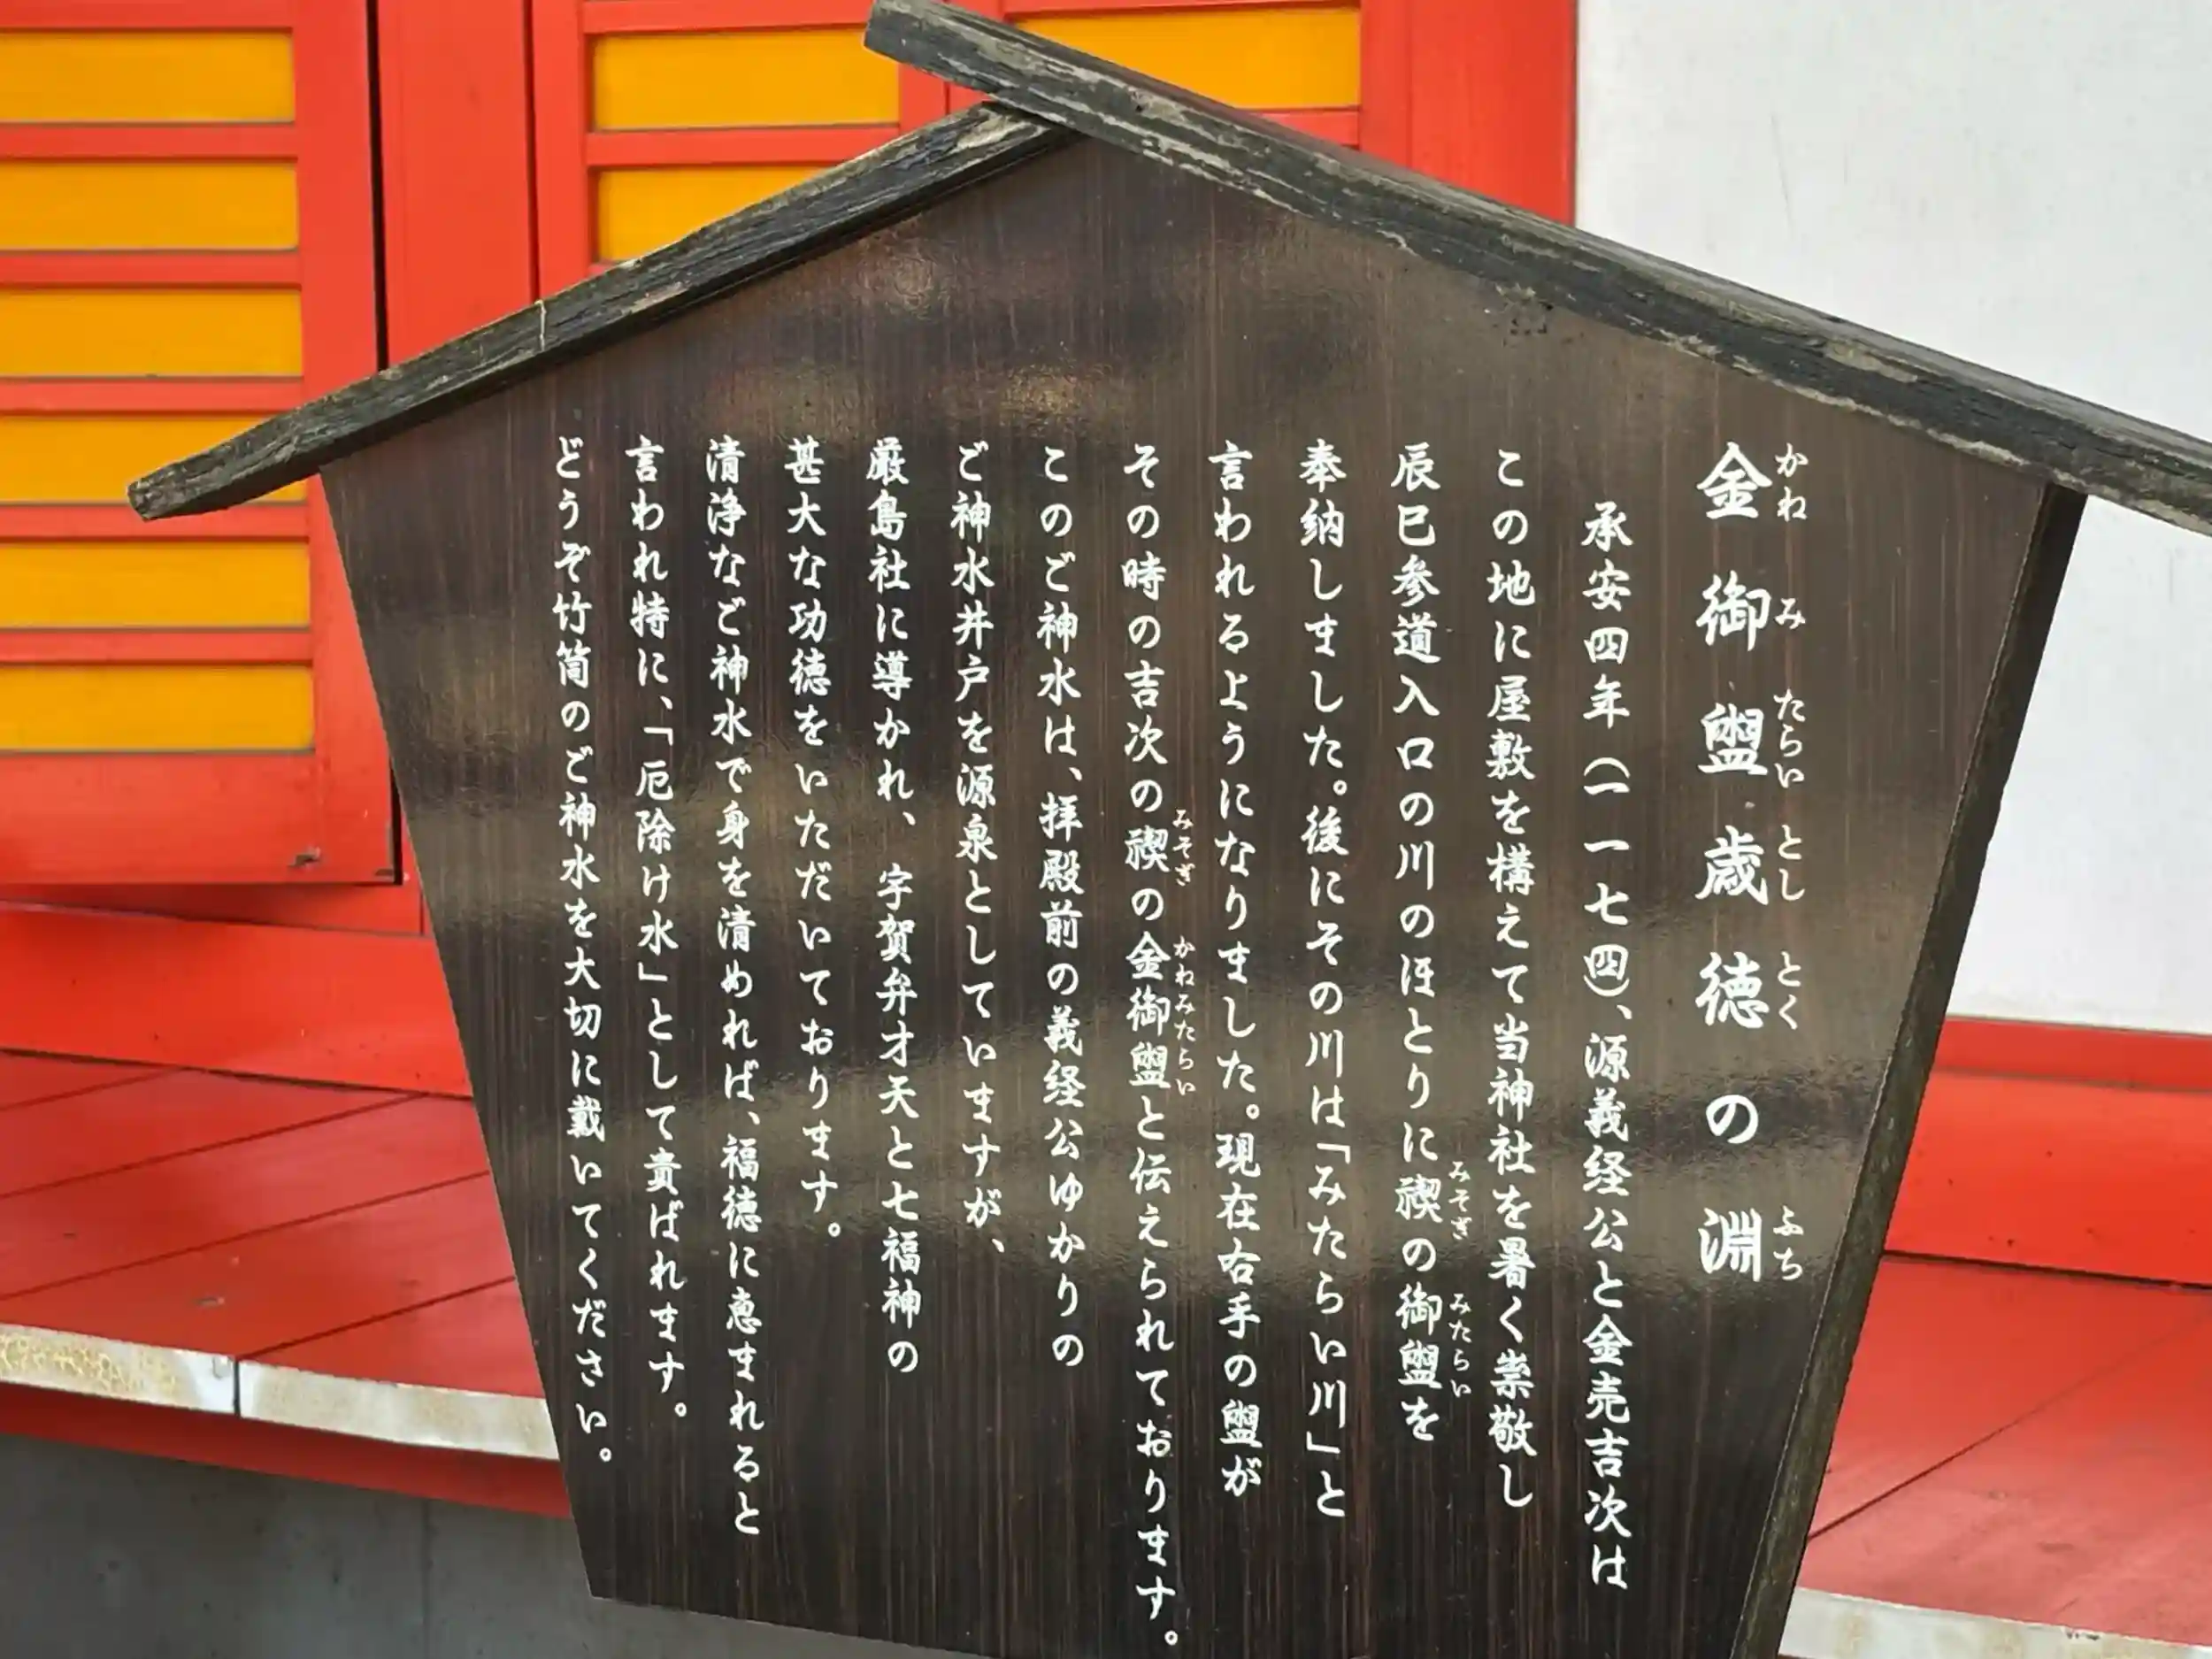 金御盥歳徳の淵
かね み たらい とし とく ふち
承安四年(一一七四)、源義経公と金売吉次は
この地に屋敷を構えて当神社を暑く崇敬し
辰巳参道入口の川のほとりに禊の御盥を
みそぎ みたらい
奉納しました。後にその川は「みたらい川」と
言われるようになりました。現在右手の盥が
その時の吉次の禊の金御盥と伝えられております。
みそぎ かねみたらい
このご神水は、拝殿前の義経公ゆかりの
ご神水井戸を源泉としていますが、
厳島社に導かれ、宇賀弁才天と七福神の
甚大な功徳をいただいております。
清浄なご神水で身を清めれば、福徳に恵まれると
言われ特に、「厄除け水」として貴ばれます。
どうぞ竹筒のご神水を大切に戴いてください。